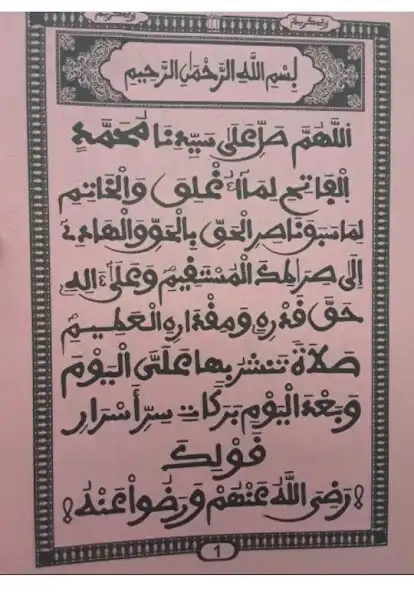 بِسْمِ اللَّهِ الرَّحْمَٰنِ الرَّحِيمِ
اَللَّهُمَّ صَلِّ عَلَى سَيِّدِنَا مُحَمَّدٍ
الْفَاتِحِ لِمَا أُغْلِقَ وَالْخَاتِمِ
لِمَا سَبَقَ نَاصِرِ الْحَقِّ بِالْحَقِّ وَالْهَادِي
إِلَى صِرَاطِكَ الْمُسْتَقِيمِ وَعَلَى ءَالِهِ
حَقَّ قَدْرِهِ وَمِقْدَارِهِ الْعَظِيمِ
صَلَاةً تَنْشُرُ بِهَا عَلَيَّ الْيَوْمَ
وَبَعْدَ الْيَوْمِ بَرَكَاتِ سِرِّ أَسْرَارِ
قَوْلِكَ
رَضِيَ اللَّهُ عَنْهُمْ وَرَضُوا عَنْهُ
1